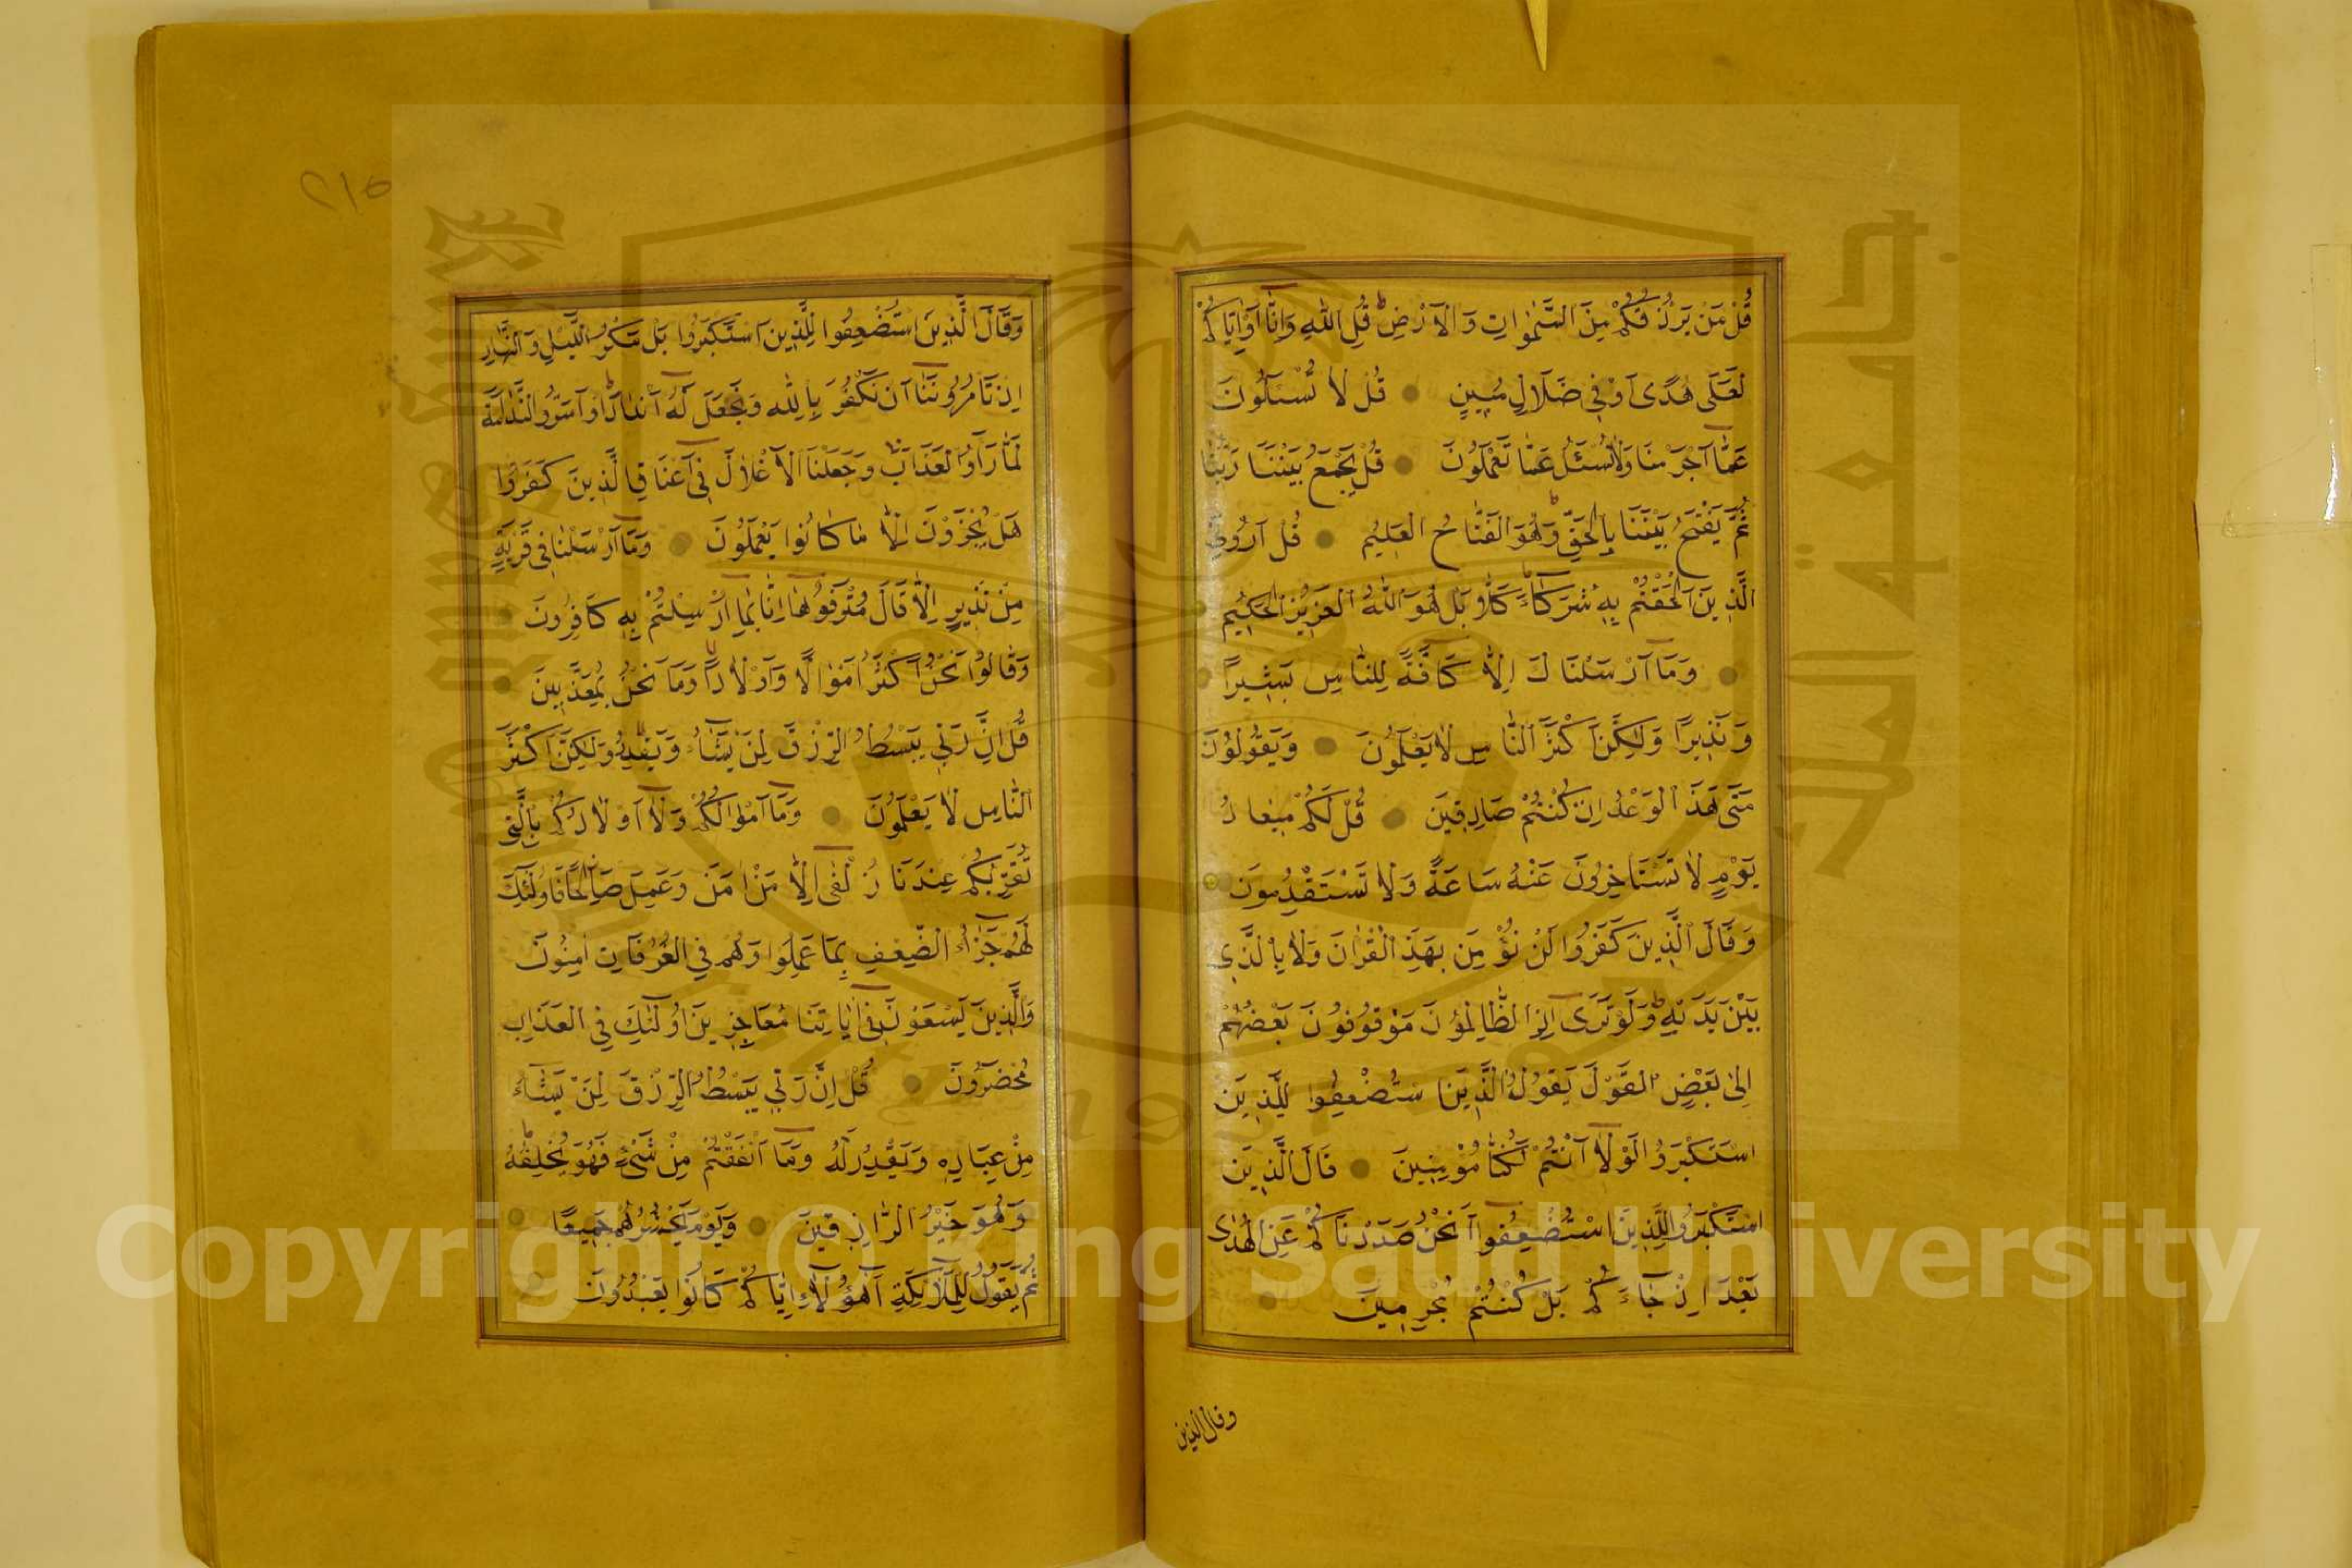 قُلْ مَنْ يَرْزُقُكُمْ مِنَ السَّمٰوَاتِ وَالْاَرْضِ ط قُلِ اللّٰهُ وَاِنَّٓا اَوْ اِيَّاكُمْ
لَعَلٰى هُدًى اَوْ فِي ضَلَالٍ مُبِينٍ قُلْ لَا تُسْئَلُونَ
عَمَّٓا اَجْرَمْنَا وَلَا نُسْئَلُ عَمَّا تَعْمَلُونَ قُلْ يَجْمَعُ بَيْنَنَا رَبُّنَا
ثُمَّ يَفْتَحُ بَيْنَنَا بِالْحَقِّ ط وَهُوَ الْفَتَّاحُ الْعَلِيمُ قُلْ اَرُونِيَ
الَّذِينَ اَلْحَقْتُمْ بِهِ شُرَكَٓاءَ كَلَّا بَلْ هُوَ اللّٰهُ الْعَزِيزُ الْحَكِيمُ
وَمَٓا اَرْسَلْنَاكَ اِلَّا كَٓافَّةً لِلنَّاسِ بَشِيرًا
وَنَذِيرًا وَلٰكِنَّ اَكْثَرَ النَّاسِ لَا يَعْلَمُونَ وَيَقُولُونَ
مَتٰى هٰذَا الْوَعْدُ اِنْ كُنْتُمْ صَادِقِينَ قُلْ لَكُمْ مِيعَادُ
يَوْمٍ لَا تَسْتَاْخِرُونَ عَنْهُ سَاعَةً وَلَا تَسْتَقْدِمُونَ
وَقَالَ الَّذِينَ كَفَرُوا لَنْ نُؤْمِنَ بِهٰذَا الْقُرْاٰنِ وَلَا بِالَّذِي
بَيْنَ يَدَيْهِ ط وَلَوْ تَرٰٓى اِذِ الظَّالِمُونَ مَوْقُوفُونَ بَعْضُهُمْ
اِلٰى بَعْضٍ الْقَوْلَ يَقُولُ الَّذِينَ اسْتُضْعِفُوا لِلَّذِينَ
اسْتَكْبَرُوا لَوْلَٓا اَنْتُمْ لَكُنَّا مُؤْمِنِينَ قَالَ الَّذِينَ
اسْتَكْبَرُوا لِلَّذِينَ اسْتُضْعِفُٓوا اَنَحْنُ صَدَدْنَاكُمْ عَنِ الْهُدٰى
بَعْدَ اِذْ جَٓاءَكُمْ بَلْ كُنْتُمْ مُجْرِمِينَ
وقال الذين
٢١٥
وَقَالَ الَّذِينَ اسْتُضْعِفُوا لِلَّذِينَ اسْتَكْبَرُوا بَلْ مَكْرُ الَّيْلِ وَالنَّهَارِ
اِذْ تَاْمُرُونَنَٓا اَنْ نَكْفُرَ بِاللّٰهِ وَنَجْعَلَ لَهُ اَنْدَادًا ط وَاَسَرُّوا النَّدَامَةَ
لَمَّا رَاَوُا الْعَذَابَ ط وَجَعَلْنَا الْاَغْلَالَ فِٓي اَعْنَاقِ الَّذِينَ كَفَرُوا
هَلْ يُجْزَوْنَ اِلَّا مَا كَانُوا يَعْمَلُونَ وَمَٓا اَرْسَلْنَا فِي قَرْيَةٍ
مِنْ نَذِيرٍ اِلَّا قَالَ مُتْرَفُوهَٓا اِنَّا بِمَٓا اُرْسِلْتُمْ بِهِ كَافِرُونَ
وَقَالُوا نَحْنُ اَكْثَرُ اَمْوَالًا وَاَوْلَادًا وَمَا نَحْنُ بِمُعَذَّبِينَ
قُلْ اِنَّ رَبِّي يَبْسُطُ الرِّزْقَ لِمَنْ يَشَٓاءُ وَيَقْدِرُ وَلٰكِنَّ اَكْثَرَ
النَّاسِ لَا يَعْلَمُونَ وَمَٓا اَمْوَالُكُمْ وَلَٓا اَوْلَادُكُمْ بِالَّتِي
تُقَرِّبُكُمْ عِنْدَنَا زُلْفٰٓى اِلَّا مَنْ اٰمَنَ وَعَمِلَ صَالِحًا فَاُولٰٓئِكَ
لَهُمْ جَزَٓاءُ الضِّعْفِ بِمَا عَمِلُوا وَهُمْ فِي الْغُرُفَاتِ اٰمِنُونَ
وَالَّذِينَ يَسْعَوْنَ فِٓي اٰيَاتِنَا مُعَاجِزِينَ اُولٰٓئِكَ فِي الْعَذَابِ
مُحْضَرُونَ قُلْ اِنَّ رَبِّي يَبْسُطُ الرِّزْقَ لِمَنْ يَشَٓاءُ
مِنْ عِبَادِهِ وَيَقْدِرُ لَهُ وَمَٓا اَنْفَقْتُمْ مِنْ شَيْءٍ فَهُوَ يُخْلِفُهُ
وَهُوَ خَيْرُ الرَّازِقِينَ وَيَوْمَ يَحْشُرُهُمْ جَمِيعًا
ثُمَّ يَقُولُ لِلْمَلٰٓئِكَةِ اَهٰٓؤُلَٓاءِ اِيَّاكُمْ كَانُوا يَعْبُدُونَ
جامعة الملك
Copyright © King Saud University